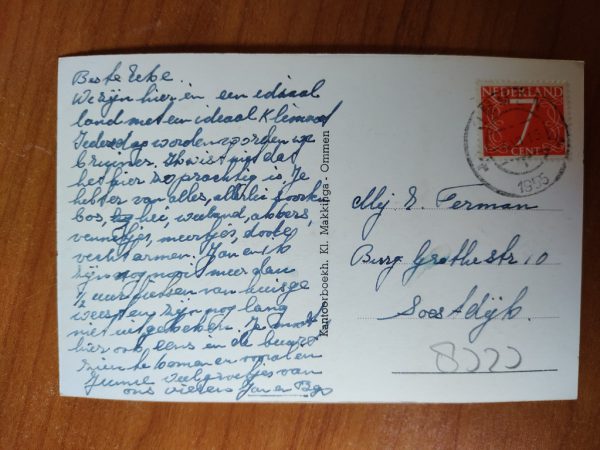 Beste Eebe.
We zijn hier in een ideaal
land met een ideaal Klimaat
Iedere dag worden we
bruiner. Ik wist niet dat
het hier zo prachtig is. Je
hebt er van alles, allerlei soorten
bos, hei, weiland, akkers,
vennetjes, meertjes, dode
vechtarmen. Jan en ik
zijn nog nooit meer dan
½ uur fietsen van huis ge
weest en zijn nog lang
niet uitgekeken. Je moet
hier ook eens in de buurt
zien te komen en
Jullie veel groetjes van
ons Jan en
Kantoorboekh. Kl. Makkinga - Ommen
NEDERLAND
7
CENT
1955
Mej E. Ferman
Burg Grothestr 10
Soestdijk.